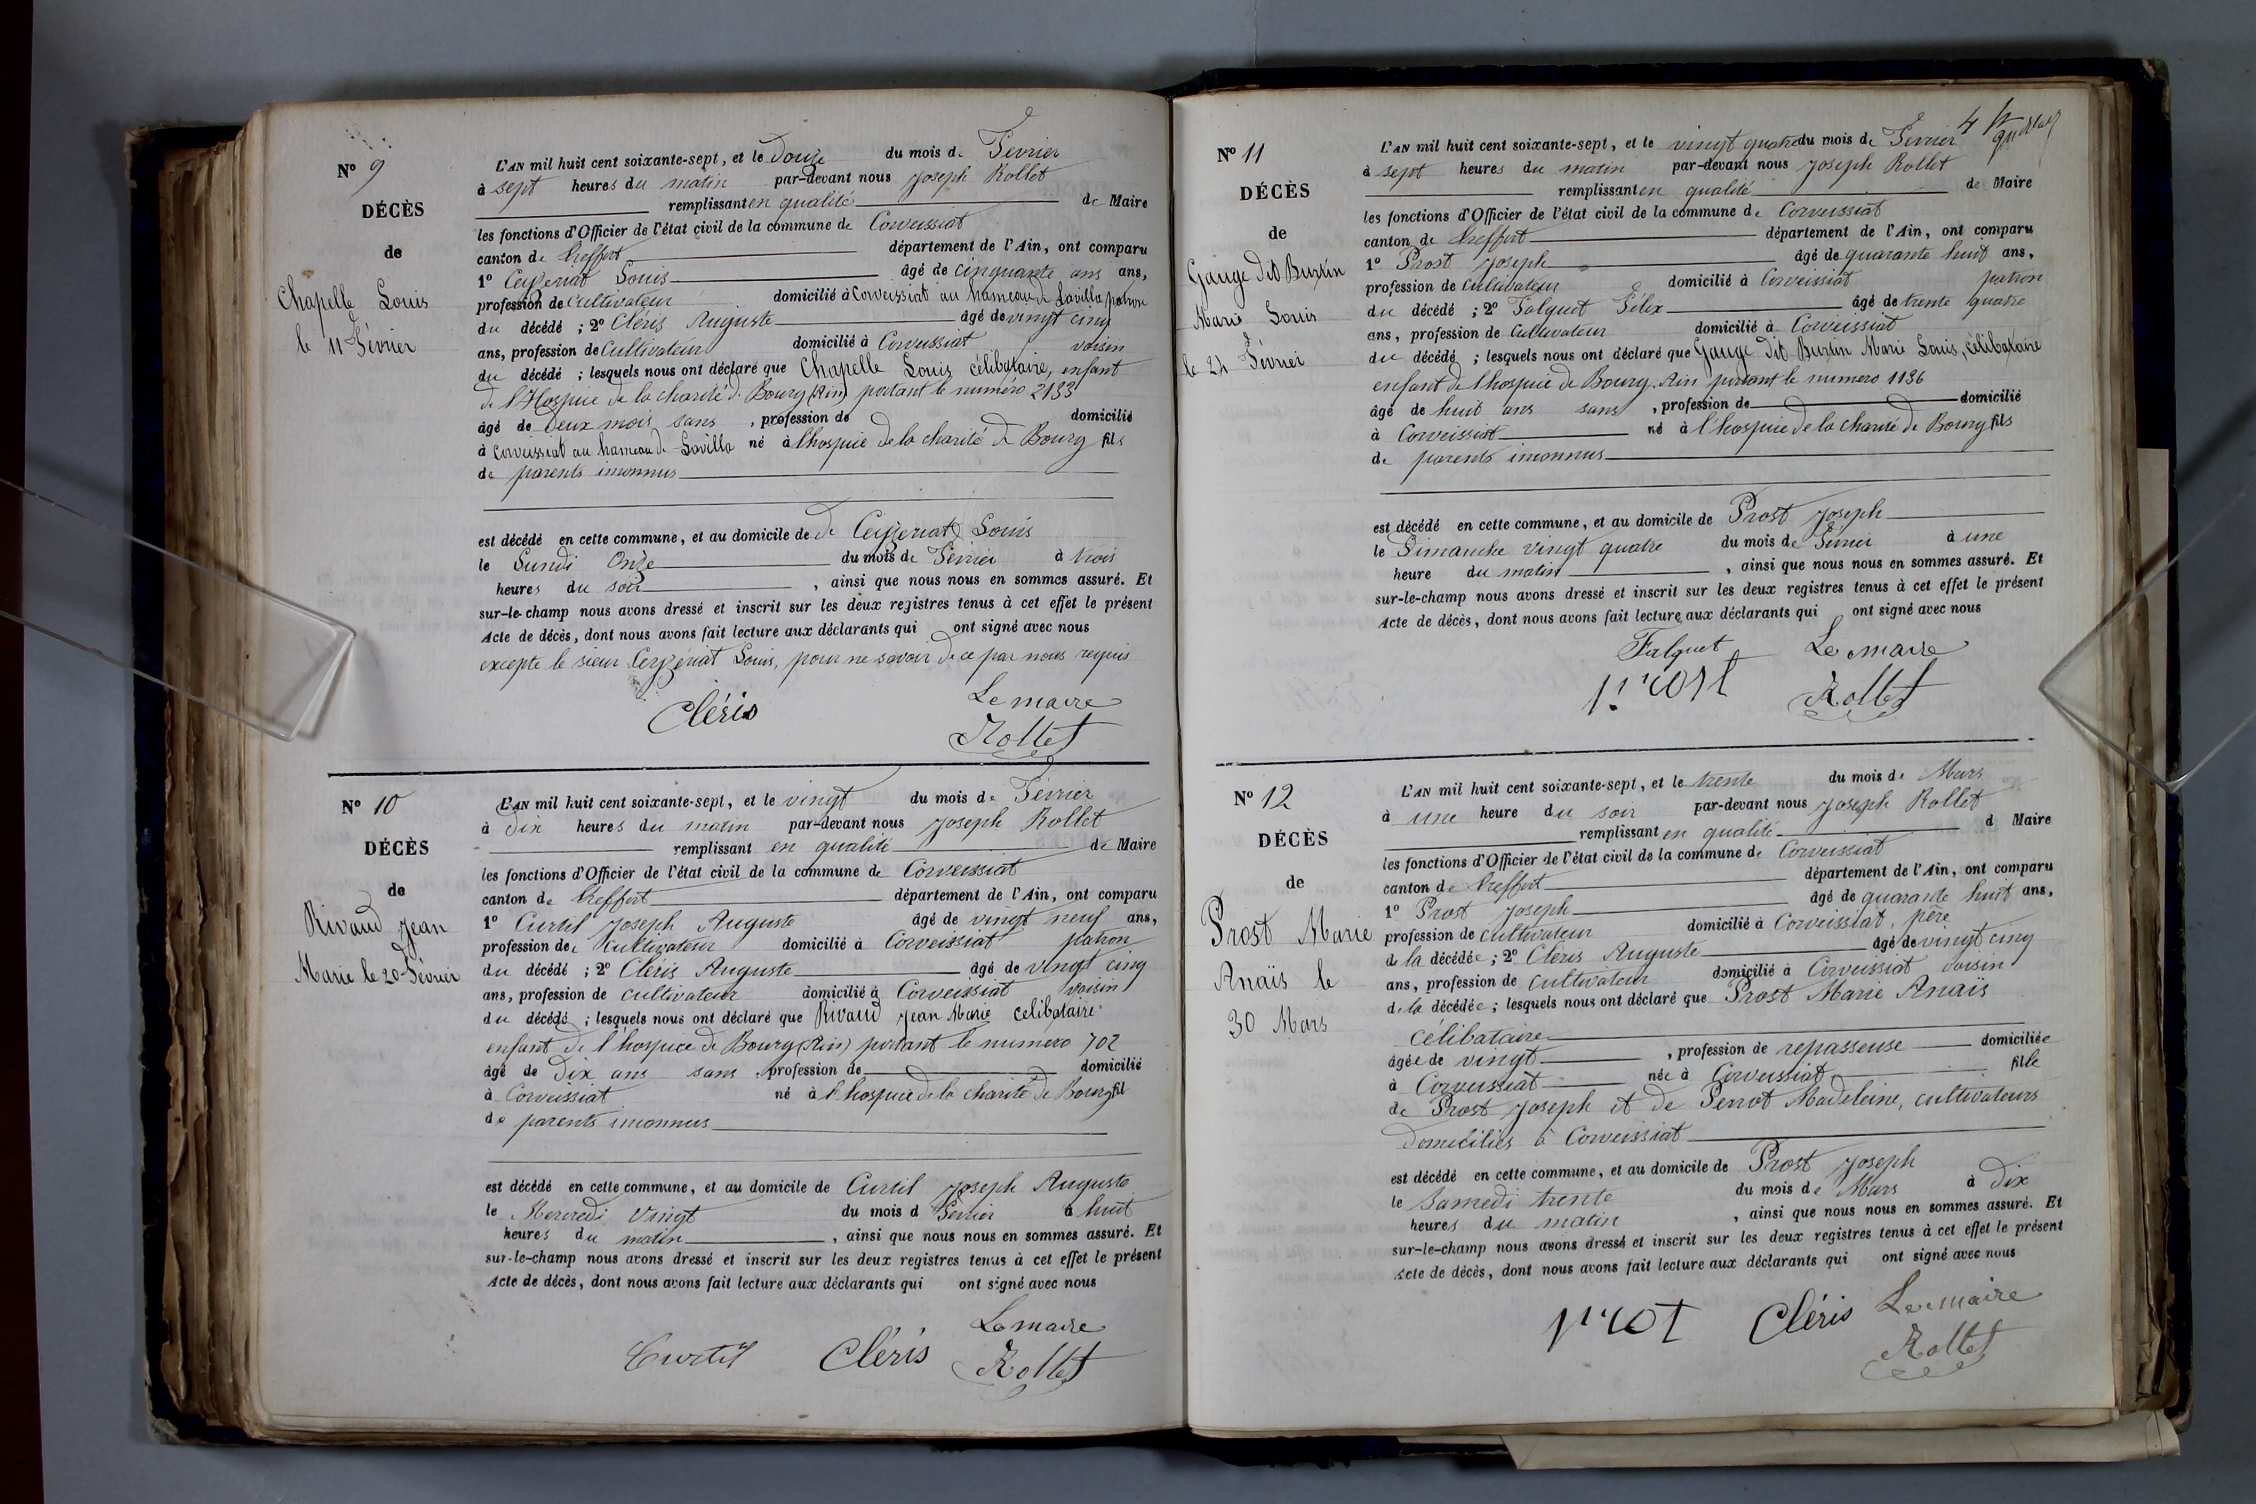 N° 9
DÉCÈS
de
Chapelle Louis
le 11 Février
L'AN mil huit cent soixante-sept, et le Douze du mois de Février
à sept heures du matin par-devant nous Joseph Rollet
remplissant en qualité de Maire
les fonctions d'Officier de l'état civil de la commune de Corveissiat
canton de Treffort département de l'Ain, ont comparu
1° Ceyzeriat Louis âgé de cinquante ans ans,
profession de Cultivateur domicilié à Corveissiat au hameau de Lavilla patron
du décédé ; 2° Cléris Auguste âgé de vingt cinq
ans, profession de Cultivateur domicilié à Corveissiat voisin
du décédé ; lesquels nous ont déclaré que Chapelle Louis célibataire, enfant
de l'Hospice de la charité de Bourg (Ain) portant le numéro 2133
âgé de Deux mois sans , profession de domicilié
à Corveissiat au hameau de Lavilla né à l'hospice de la charité de Bourg fils
de parents inconnus
est décédé en cette commune, et au domicile de de Ceyzeriat Louis
le Lundi Onze du mois de Février à trois
heures du soir , ainsi que nous nous en sommes assuré. Et
sur-le-champ nous avons dressé et inscrit sur les deux registres tenus à cet effet le présent
Acte de décès, dont nous avons fait lecture aux déclarants qui ont signé avec nous
excepte le sieur Ceyzériat Louis, pour ne savoir de ce par nous requis
Cléris
Le maire
Rollet
N° 10
DÉCÈS
de
Rivaud Jean
Marie le 20 Février
L'AN mil huit cent soixante-sept, et le vingt du mois de Février
à Dix heures du matin par-devant nous Joseph Rollet
remplissant en qualité de Maire
les fonctions d'Officier de l'état civil de la commune de Corveissiat
canton de Treffort département de l'Ain, ont comparu
1° Curtil Joseph Auguste âgé de vingt neuf ans,
profession de cultivateur domicilié à Corveissiat patron
du décédé ; 2° Cléris Auguste âgé de vingt cinq
ans, profession de cultivateur domicilié à Corveissiat voisin
du décédé ; lesquels nous ont déclaré que Rivaud Jean Marie célibataire
enfant de l'hospice de Bourg (Ain) portant le numero 702
âgé de Dix ans sans , profession de domicilié
à Corveissiat né à l'hospice de la charité de Bourg fil
de parents inconnus
est décédé en cette commune, et au domicile de Curtil Joseph Auguste
le Mercredi Vingt du mois d Février à huit
heures du matin , ainsi que nous nous en sommes assuré. Et
sur-le-champ nous avons dressé et inscrit sur les deux registres tenus à cet effet le présent
Acte de décès, dont nous avons fait lecture aux déclarants qui ont signé avec nous
Curtil Cléris
Le maire
Rollet
4
N° 11
DÉCÈS
de
Gauge dit Burtin
Marie Louis
le 24 Février
L'AN mil huit cent soixante-sept, et le vingt quatre du mois de Février
à sept heures du matin par-devant nous Joseph Rollet
remplissant en qualité de Maire
les fonctions d'Officier de l'état civil de la commune de Corveissiat
canton de Treffort département de l'Ain, ont comparu
1° Prost Joseph âgé de quarante huit ans,
profession de Cultivateur domicilié à Corveissiat patron
du décédé ; 2° Falquet Félix âgé de trente quatre
ans, profession de Cultivateur domicilié à Corveissiat
du décédé ; lesquels nous ont déclaré que Gauge dit Burtin Marie Louis, célibataire
enfant de l'hospice de Bourg, Ain portant le numero 1136
âgé de huit ans sans , profession de domicilié
à Corveissiat né à l'hospice de la charité de Bourg fils
de parents inconnus
est décédé en cette commune, et au domicile de Prost Joseph
le Dimanche vingt quatre du mois de Février à une
heure du matin , ainsi que nous nous en sommes assuré. Et
sur-le-champ nous avons dressé et inscrit sur les deux registres tenus à cet effet le présent
Acte de décès, dont nous avons fait lecture aux déclarants qui ont signé avec nous
Falquet Le maire
prost Rollet
N° 12
DÉCÈS
de
Prost Marie
Anaïs le
30 Mars
L'AN mil huit cent soixante-sept, et le trente du mois de Mars
à une heure du soir par-devant nous Joseph Rollet
remplissant en qualité d Maire
les fonctions d'Officier de l'état civil de la commune de Corveissiat
canton de Treffort département de l'Ain, ont comparu
1° Prost Joseph âgé de quarante huit ans,
profession de cultivateur domicilié à Corveissiat, père
de la décédée ; 2° Cléris Auguste âgé de vingt cinq
ans, profession de cultivateur domicilié à Corveissiat voisin
de la décédée ; lesquels nous ont déclaré que Prost Marie Anaïs
célibataire
âgée de vingt , profession de repasseuse domiciliée
à Corveissiat née à Corveissiat fille
de Prost Joseph et de Perrot Madeleine, cultivateurs
domiciliés à Corveissiat
est décédé en cette commune, et au domicile de Prost Joseph
le Samedi trente du mois de Mars à Dix
heures du matin , ainsi que nous nous en sommes assuré. Et
sur-le-champ nous avons dressé et inscrit sur les deux registres tenus à cet effet le présent
Acte de décès, dont nous avons fait lecture aux déclarants qui ont signé avec nous
prot Cléris Le maire
Rollet